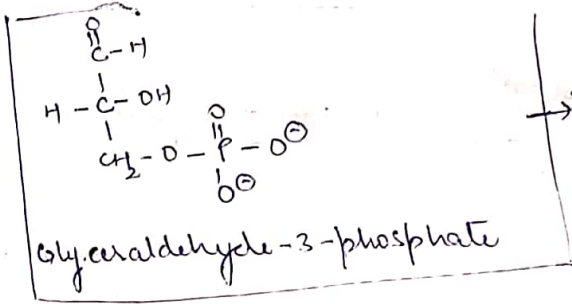 O
C-H
H-C-OH
O
CH₂-O-P-O⊖
O⊖
Glyceraldehyde-3-phosphate